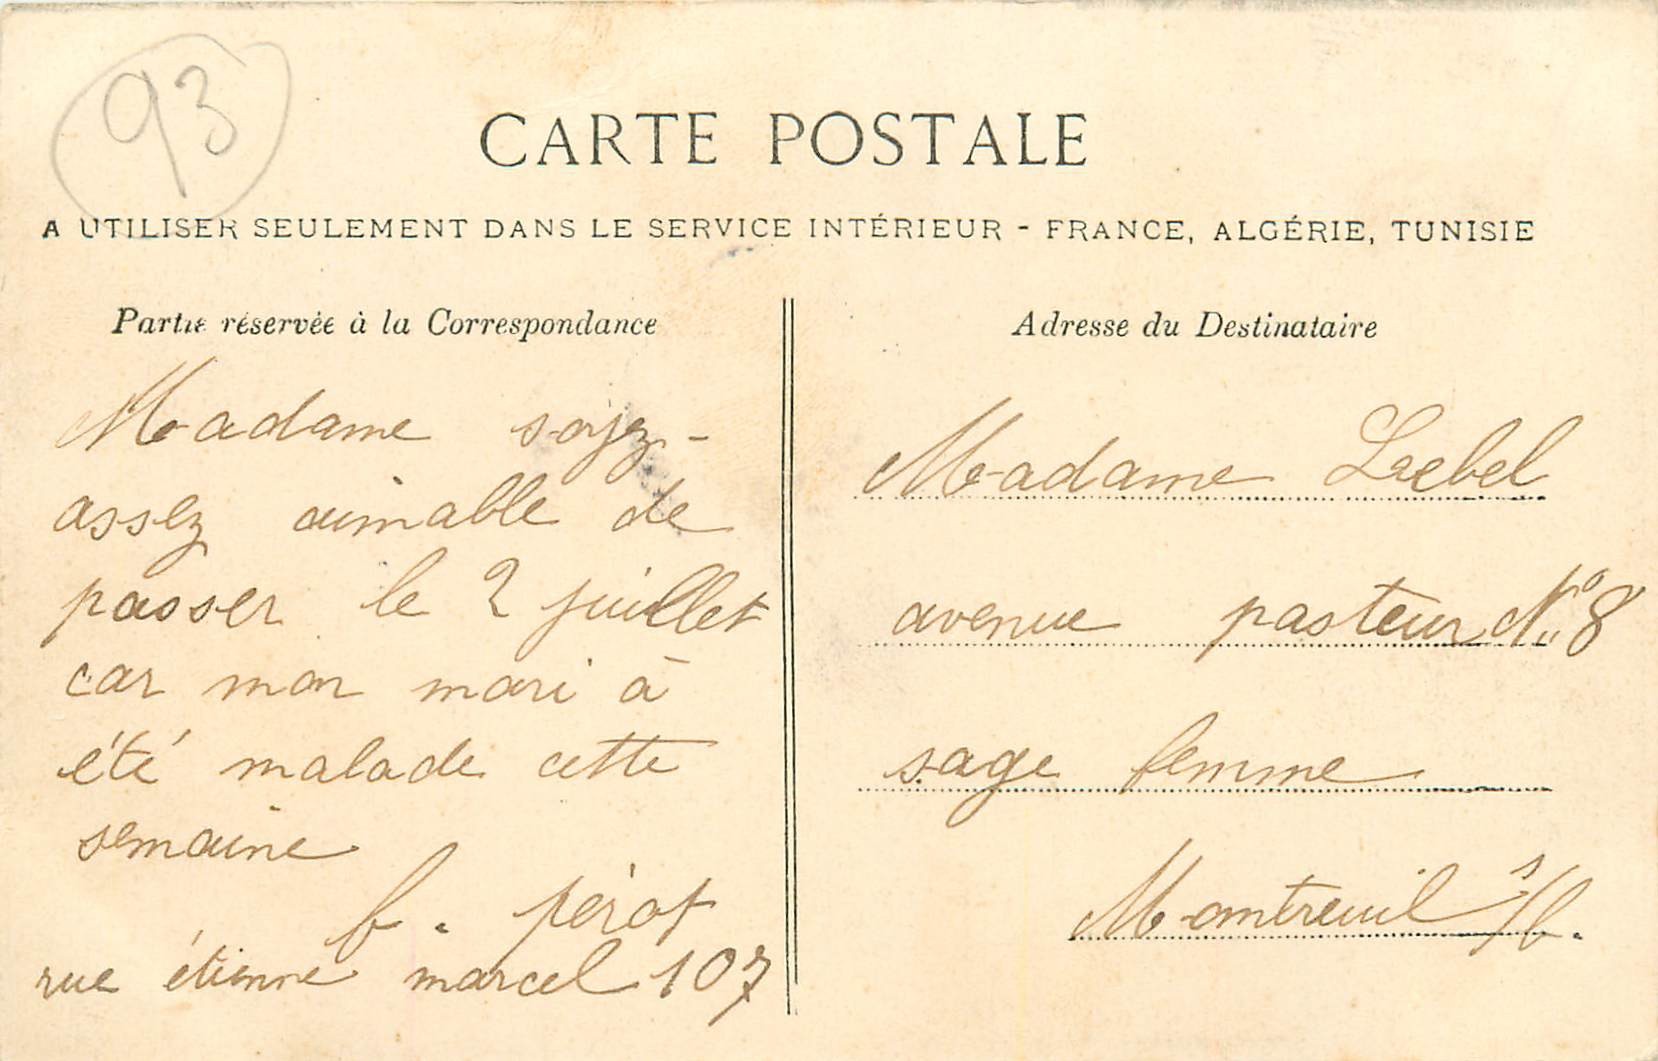 93
CARTE POSTALE
A UTILISER SEULEMENT DANS LE SERVICE INTÉRIEUR - FRANCE, ALGÉRIE, TUNISIE
Partie réservée à la Correspondance
Madame soyez-
assez aimable de
passer le 2 juillet
car mon mari à
été malade cette
semaine
f. pérot
rue étienne marcel 107
Adresse du Destinataire
Madame Lebel
avenue pasteur N° 8
sage femme
Montreuil s/b.